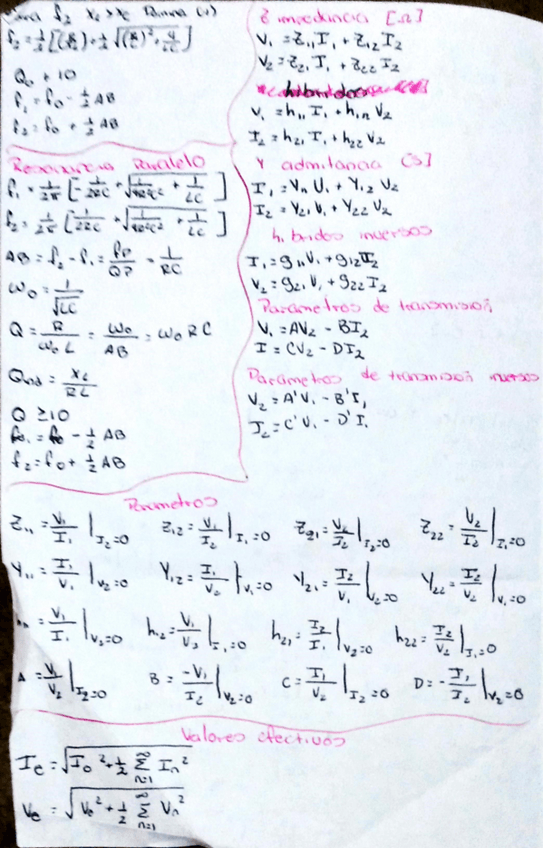 f₂ X_L > X_C (+)
f₂ = 1/2 [(R/L) + 1/2 √((R/L)² + 4/LC)]
f₁ = f₀ - 1/2 AB
f₂ = f₀ + 1/2 AB
Resonancia Paralelo
AB = f₂ - f₁ = = 1/RC
ω₀ = 1/√LC
Q = R/ω₀L = ω₀/AB = ω₀RC
Q ≥ 10
= f₀ - 1/2 AB
f₂ = f₀ + 1/2 AB
Z impedancia [Ω]
V₁ = Z₁₁ I₁ + Z₁₂ I₂
V₂ = Z₂₁ I₁ + Z₂₂ I₂
hibridos
V₁ = h₁₁ I₁ + h₁₂ V₂
I₂ = h₂₁ I₁ + h₂₂ V₂
Y admitancia [S]
I₁ = Y₁₁ V₁ + Y₁₂ V₂
I₂ = Y₂₁ V₁ + Y₂₂ V₂
hibridos inversos
I₁ = g₁₁ V₁ + g₁₂ I₂
V₂ = g₂₁ V₁ + g₂₂ I₂
Parametros de transmision
V₁ = AV₂ - BI₂
I = CV₂ - DI₂
Parametros de transmision inversos
V₂ = A'V₁ - B'I₁
I₂ = C'V₁ - D'I₁
Parametros
Z₁₁ = V₁/I₁ |I₂=0 Z₁₂ = V₁/I₂ |I₁=0 Z₂₁ = V₂/I₂ |I₂=0 Z₂₂ = V₂/I₂ |I₁=0
Y₁₁ = I₁/V₁ |V₂=0 Y₁₂ = I₁/V₂ |V₁=0 Y₂₁ = I₂/V₁ |V₂=0 Y₂₂ = I₂/V₂ |V₁=0
= V₁/I₁ |V₂=0 h₁₂ = V₁/V₂ |I₁=0 h₂₁ = I₂/I₁ |V₂=0 h₂₂ = I₂/V₂ |I₁=0
A = V₁/V₂ |I₂=0 B = -V₁/I₂ |V₂=0 C = I₁/V₂ |I₂=0 D = -I₁/I₂ |V₂=0
Valores efectivos
Ie = √(I₀² + 1/2 Σ n=1 ∞ Iₙ²)
Ve = √(V₀² + 1/2 Σ n=1 ∞ Vₙ²)